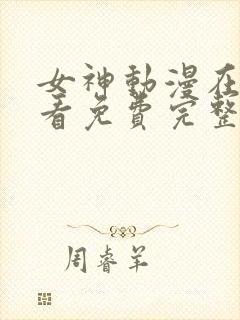 女神動漫在
看免費完整
周睿羊